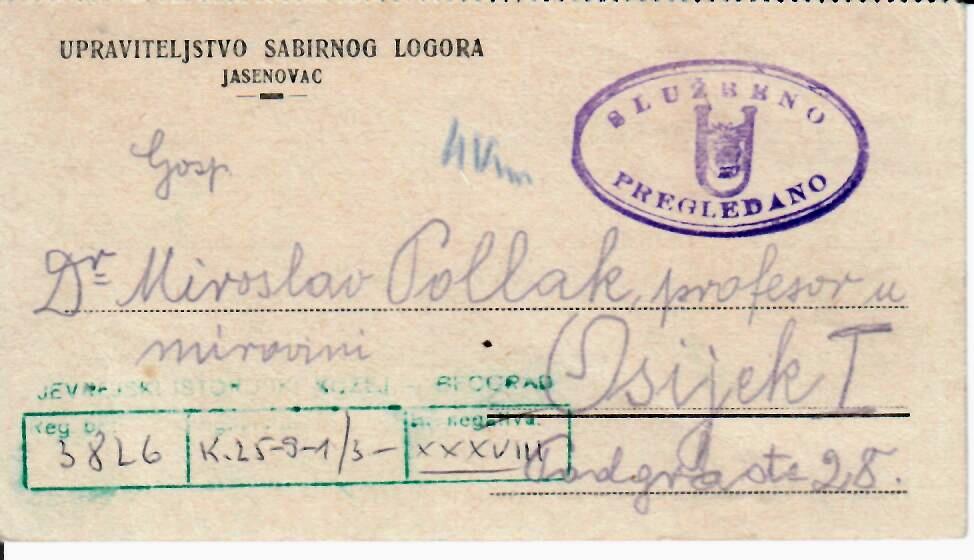 UPRAVITELJSTVO SABIRNOG LOGORA
JASENOVAC
SLUŽBENO
PREGLEDANO
Gosp
Dr Miroslav Pollak, profesor u
mirovini
Osijek I
JEVREJSKI ISTORIJSKI MUZEJ - BEOGRAD
Reg. br.
3826
K.25-9-1/3-
negativa.
XXXVIII
28.